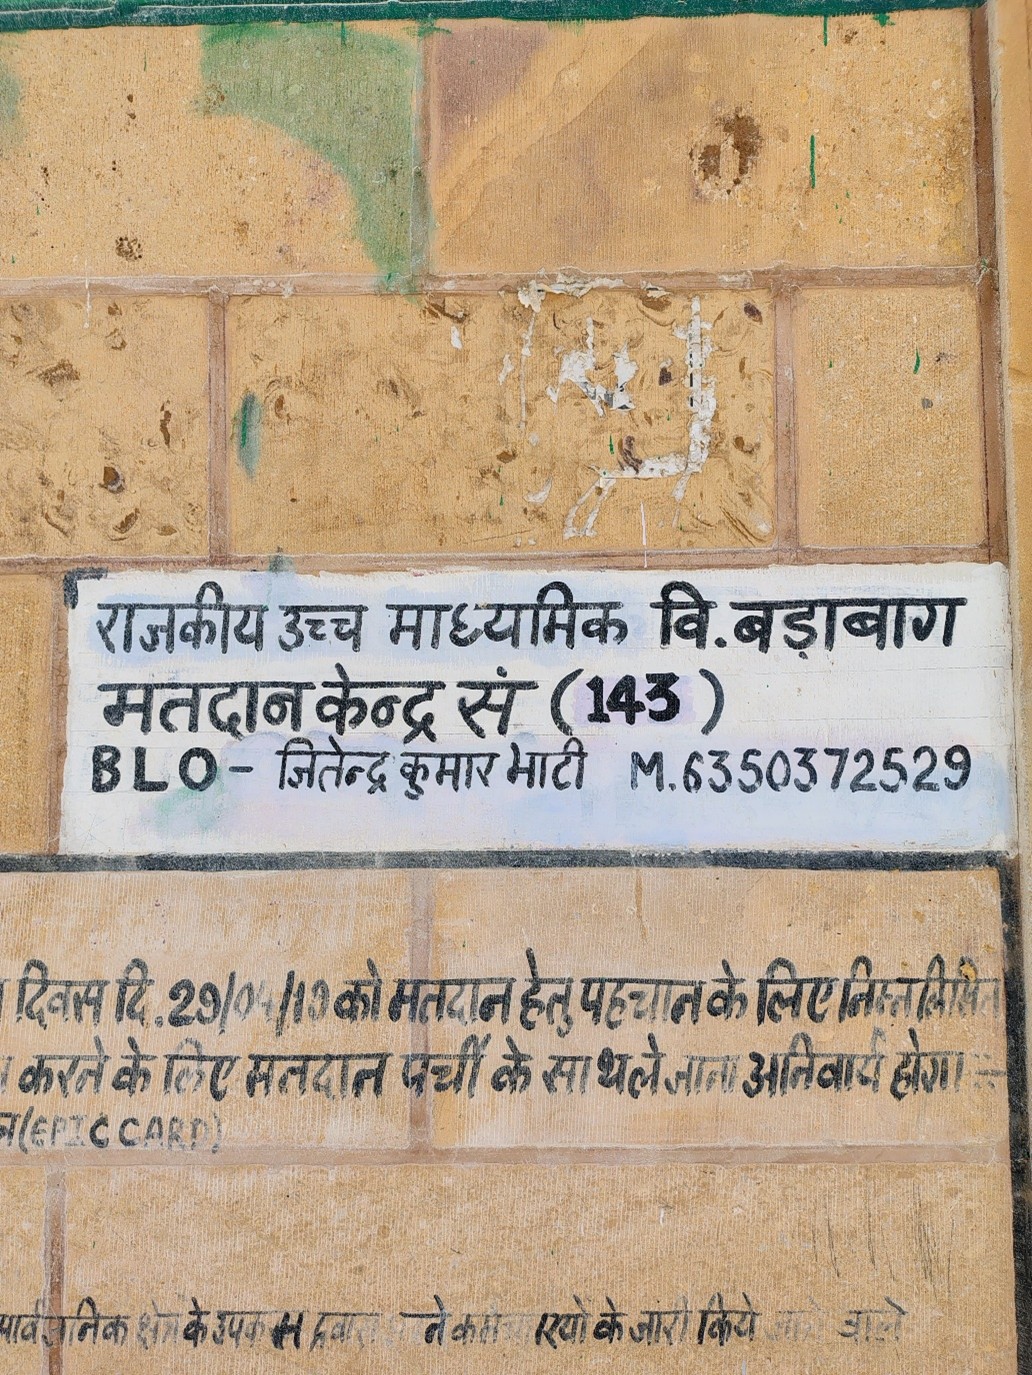 राजकीय उच्च माध्यमिक वि. बड़ाबाग
मतदान केन्द्र सं (143)
BLO - जितेन्द्र कुमार भाटी M.6350372529
दिवस दि. 29/04/19 को मतदान हेतु पहचान के लिए निम्न लिखित
करने के लिए मतदान पर्ची के साथ ले जाना अनिवार्य होगा :-
(EPIC CARD)
सार्वजनिक क्षेत्र के उपक्रम द्वारा अपने कर्मचारियों के जारी किये जाने वाले